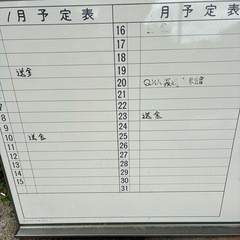 1月予定表
送金
8
9
10 送金
11
12
13
14
15
月予定表
16
17
18
19
20
21
22
23 送金
24
25
26
27
28
29
30
31